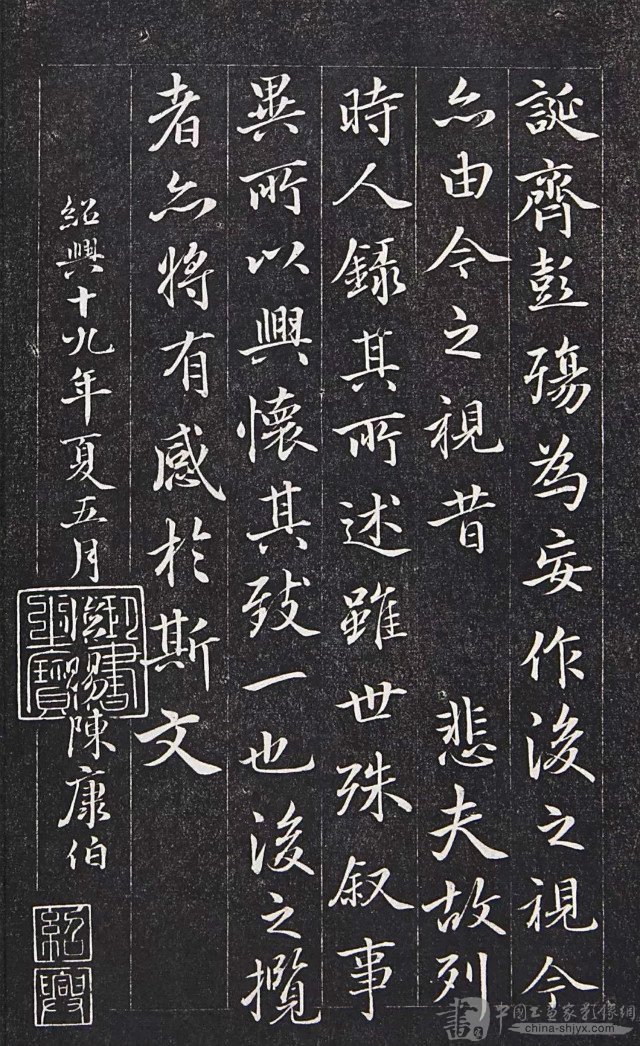 誕齊彭殤為妄作後之視今
亦由今之視昔 悲夫故列
時人録其所述雖世殊叙事
異所以興懷其致一也後之攬
者亦将有感於斯文
紹興十九年夏五月 賜陳康伯
御書之寶
紹興
書
中国書画家影像網
china-shjyx.com